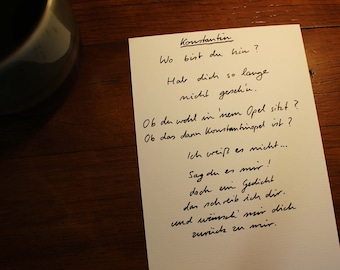 Konstantin
Wo bist du hin?
Hab dich so lange
nicht gesehn.
Ob du wohl in 'nem Opel sitzt?
Ob das dann Konstantinopel ist?
Ich weiß es nicht...
Sag du es mir!
doch ein Gedicht
das schreib ich dir.
und wünsch' mir dich
zurück zu mir.